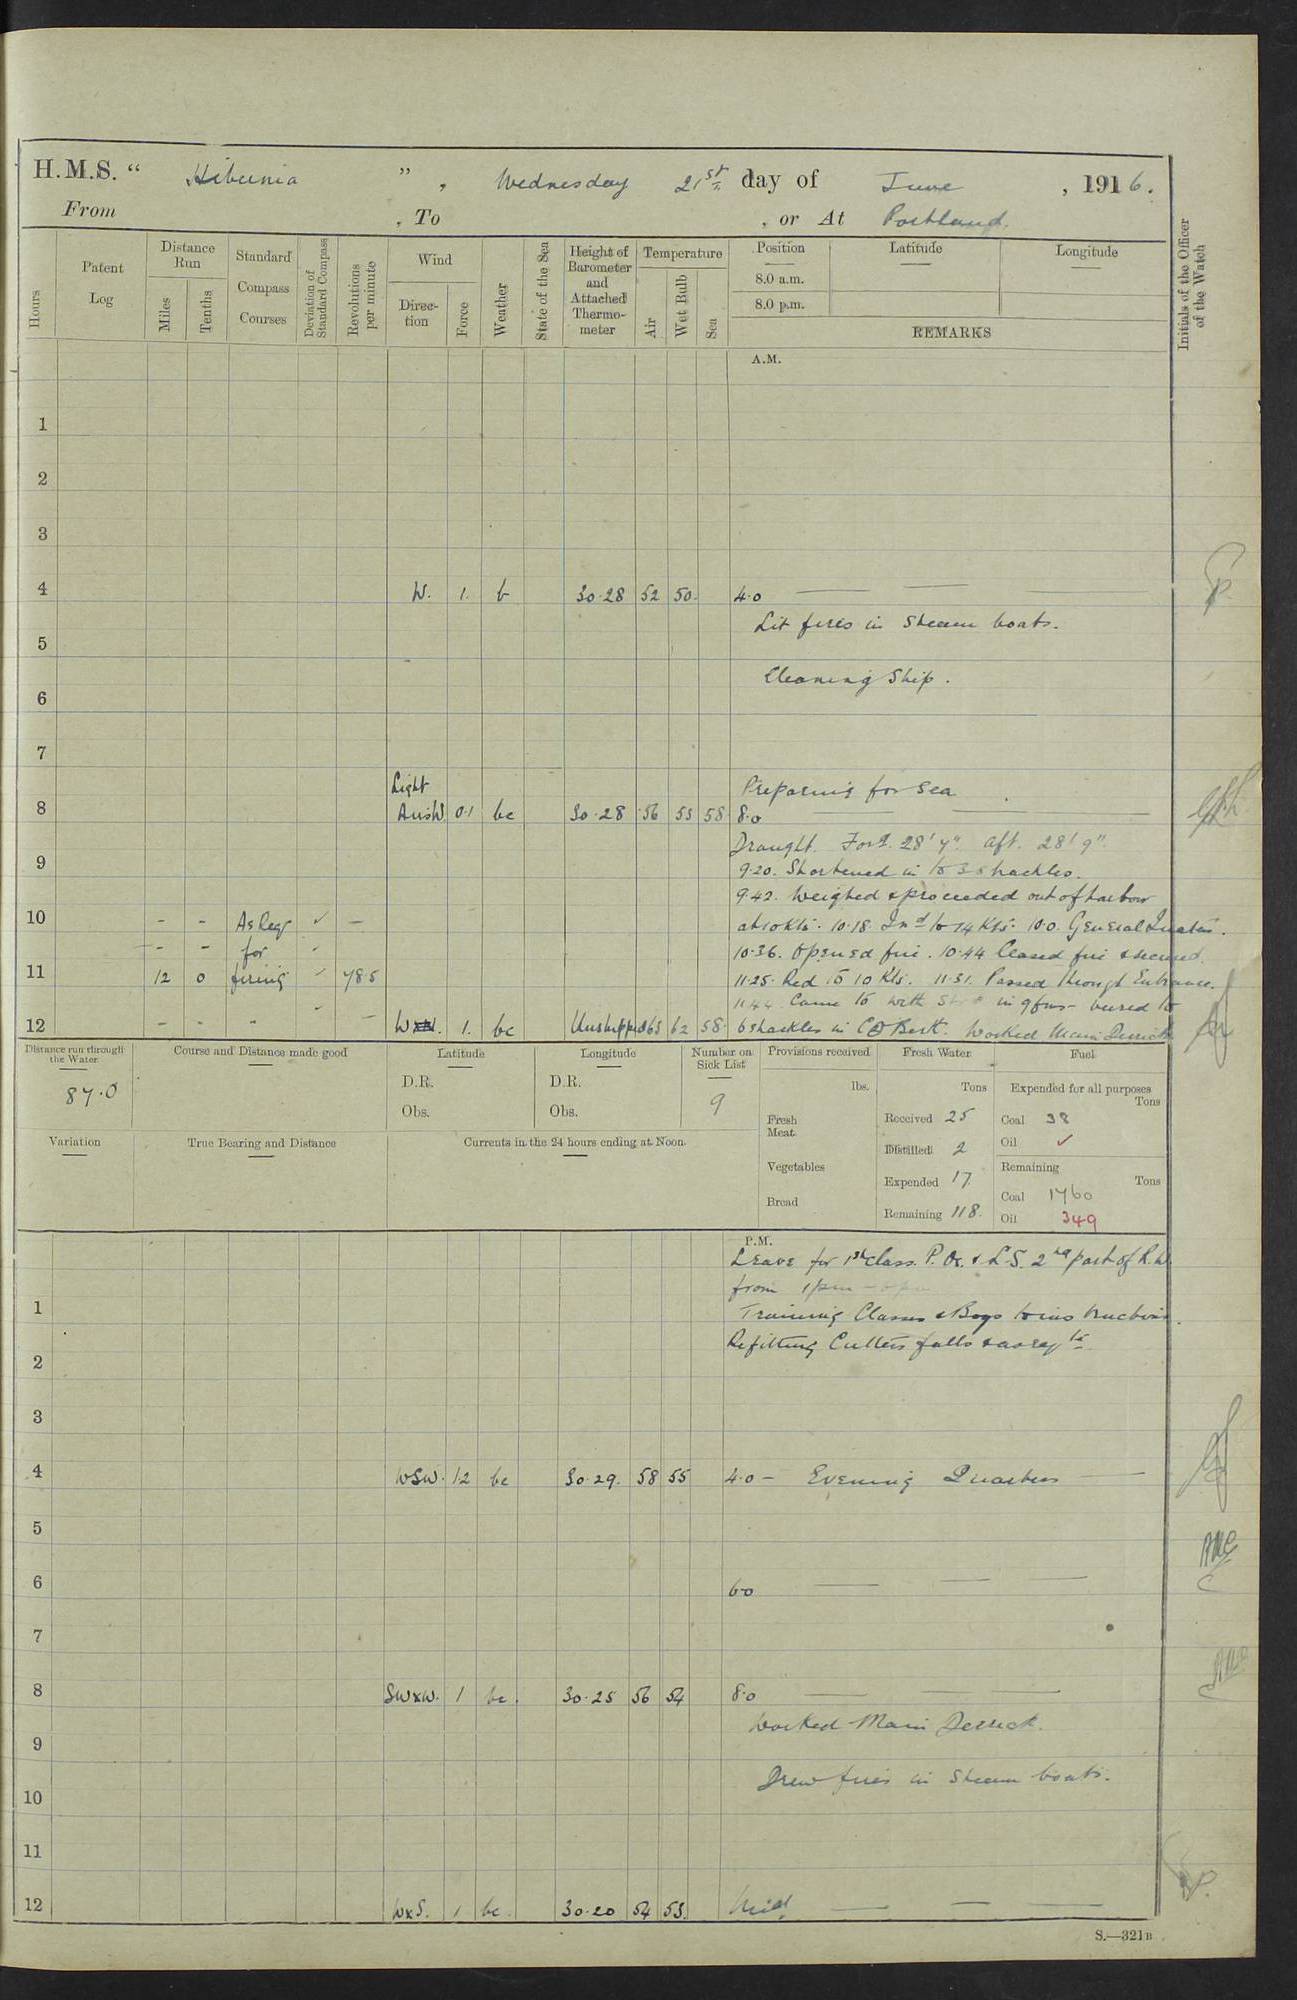 H.M.S. " Hibernia ", Wednesday 21st day of June, 1916.
From , To , or At Portland.
Hours
Patent Log
Distance Run
Miles
Tenths
Standard Compass Courses
Deviation of Standard Compass
Revolutions per minute
Wind
Direction
Force
Weather
State of the Sea
Height of Barometer and Attached Thermometer
Temperature
Air
Wet Bulb
Sea
Position
8.0 a.m.
8.0 p.m.
Latitude
Longitude
REMARKS
Initials of the Officer of the Watch
A.M.
1
2
3
4 W. 1. b 30.28 52 50. 4.0
Lit fires in Steam boats.
5
Cleaning Ship.
6
7
Light Preparing for Sea
8 Airs W. 0.1 bc 30.28 56 53 58 8.0
Draught. Ford. 28' 7". aft. 28' 9"
9 9.20. Shortened in to 3 shackles.
9.42. Weighed & proceeded out of harbour
10 - - As Req ✓ - at 10 Kts. 10.18. Ind to 14 Kts. 10.0. General Quarters.
- - for 10.36. Opened fire. 10.44 Ceased fire & secured.
11 12 0 firing ✓ 78.5 11.25. Red to 10 Kts. 11.31. Passed through Entrance.
11.44. Came to with in 9 fms - veered to
12 - - " 1. bc Unshipped 63 62 58. 6 shackles in Berth. Worked Main Derrick
Distance run through the Water
87.0
Course and Distance made good
Latitude
D.R.
Obs.
Longitude
D.R.
Obs.
Number on Sick List
9
Provisions received
lbs.
Fresh Meat
Vegetables
Bread
Fresh Water
Tons
Received 25
Distilled 2
Expended 17
Remaining 118.
Fuel
Expended for all purposes
Tons
Coal 38
Oil ✓
Remaining
Tons
Coal 1760
Oil 349
Variation
True Bearing and Distance
Currents in the 24 hours ending at Noon.
P.M.
Leave for 1st class. P.Os. & L.S. 2nd part of R.W.
from 1 pm
1 Training Classes & Boys to instructions.
Refitting Cutters falls
2
3
4 WSW. 1.2 bc 30.29. 58 55 4.0 - Evening Quarters
5
6 6.0
7
8 SWxW. 1 bc. 30.25 56 54 8.0
Worked Main Derrick.
9
Drew fires in Steam boats.
10
11
12 WxS. 1 bc. 30.20 54 53. Mid.
S.—321B